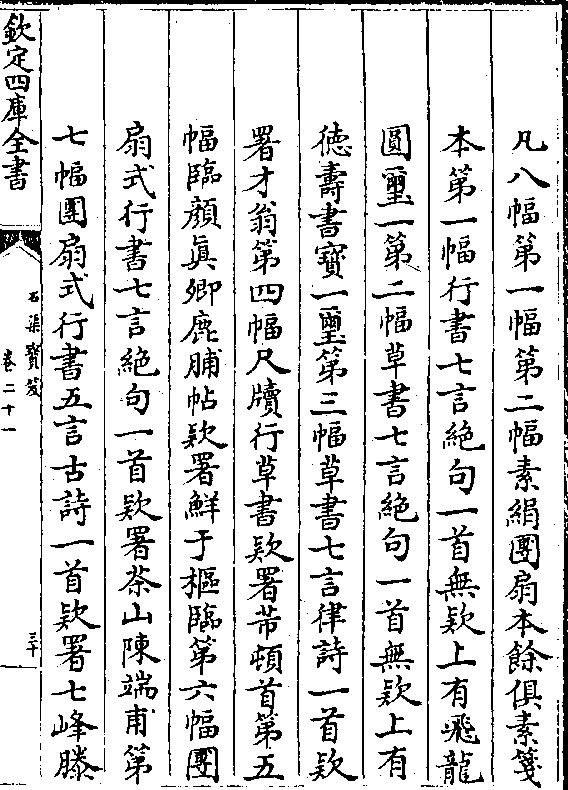 凡八幅第一幅第二幅素絹團扇本餘俱素箋
本第一幅行書七言絶句一首無欵上有飛龍
圓璽一第二幅草書七言絶句一首無欵上有
徳壽書寳一璽第三幅草書七言律詩一首欵
署才翁第四幅尺牘行草書欵署芾頓首第五
幅臨顔真卿鹿脯帖欵署鮮于樞臨第六幅團
扇式行書七言絶句一首欵署茶山陳端甫第
七幅團扇式行書五言古詩一首欵署七峰滕
欽定四庫全書
石渠寳笈
卷二十一
三十